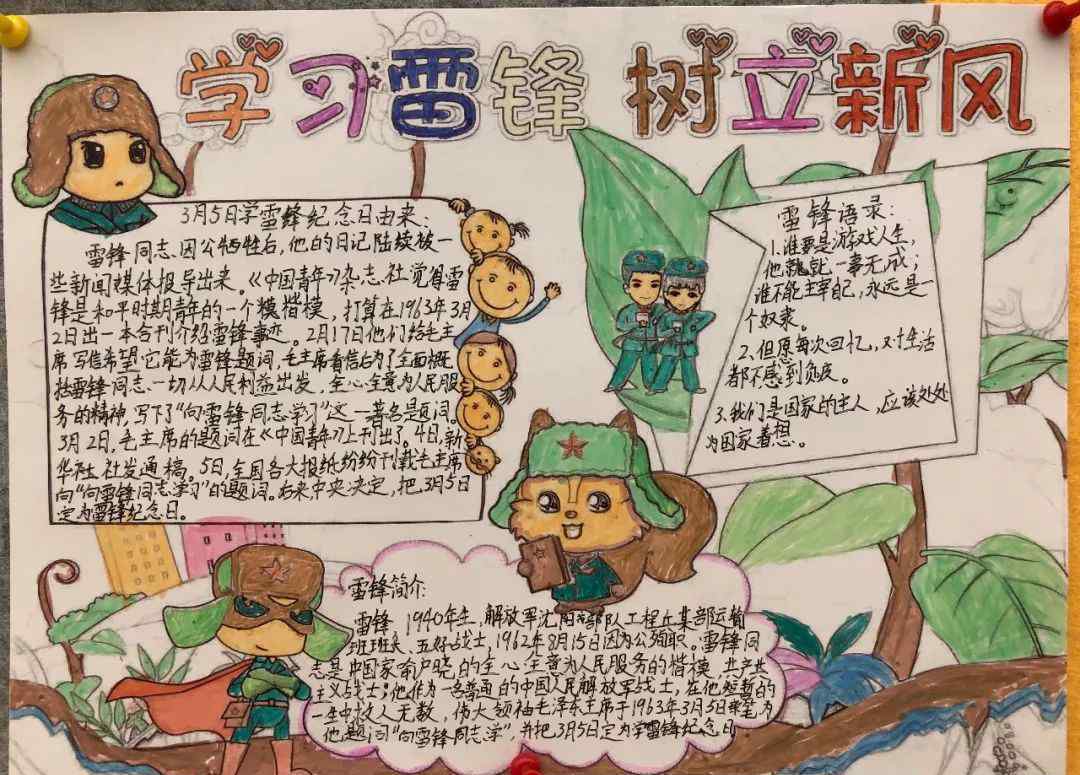 学习雷锋 树立新风
3月5日学雷锋纪念日由来:
雷锋同志因公牺牲后,他的日记陆续被一
些新闻媒体报导出来。《中国青年》杂志社觉得雷
锋是和平时期青年的一个模楷模,打算在1963年3月
2日出一本合刊介绍雷锋事迹。2月17日他们给毛主
席写信希望它能为雷锋题词,毛主席看信后为了全面概
括雷锋同志一切从人民利益出发,全心全意为人民服
务的精神,写下了“向雷锋同志学习”这一著名题词。
3月2日,毛主席的题词在《中国青年》上刊出了。4日,新
华社社发通稿。5日,全国各大报纸纷纷刊载毛主席
向“向雷锋同志学习”的题词。后来中央决定,把3月5日
定为雷锋纪念日。
雷锋语录:
1.谁要是游戏人生,
他就 一事无成;
谁不能主宰自己,永远是一
个奴隶。
2、但愿每次回忆,对生活
都不感到负疚。
3.我们是国家的主人,应该处处
为国家着想。
雷锋简介:
雷锋 1940年生,解放军沈阳部队工程兵某部运输
班班长、五好战士,1962年8月15日因为公殉职。雷锋同
志是中国家喻户晓的全心全意为人民服务的楷模,共产共
主义战士;他作为一名普通的中国人民解放军战士,在他短暂的
一生中 人无数,伟大领袖毛泽东主席于1963年3月5日 笔为
他题词“向雷锋同志学”,并把3月5日定为学雷锋纪念日.